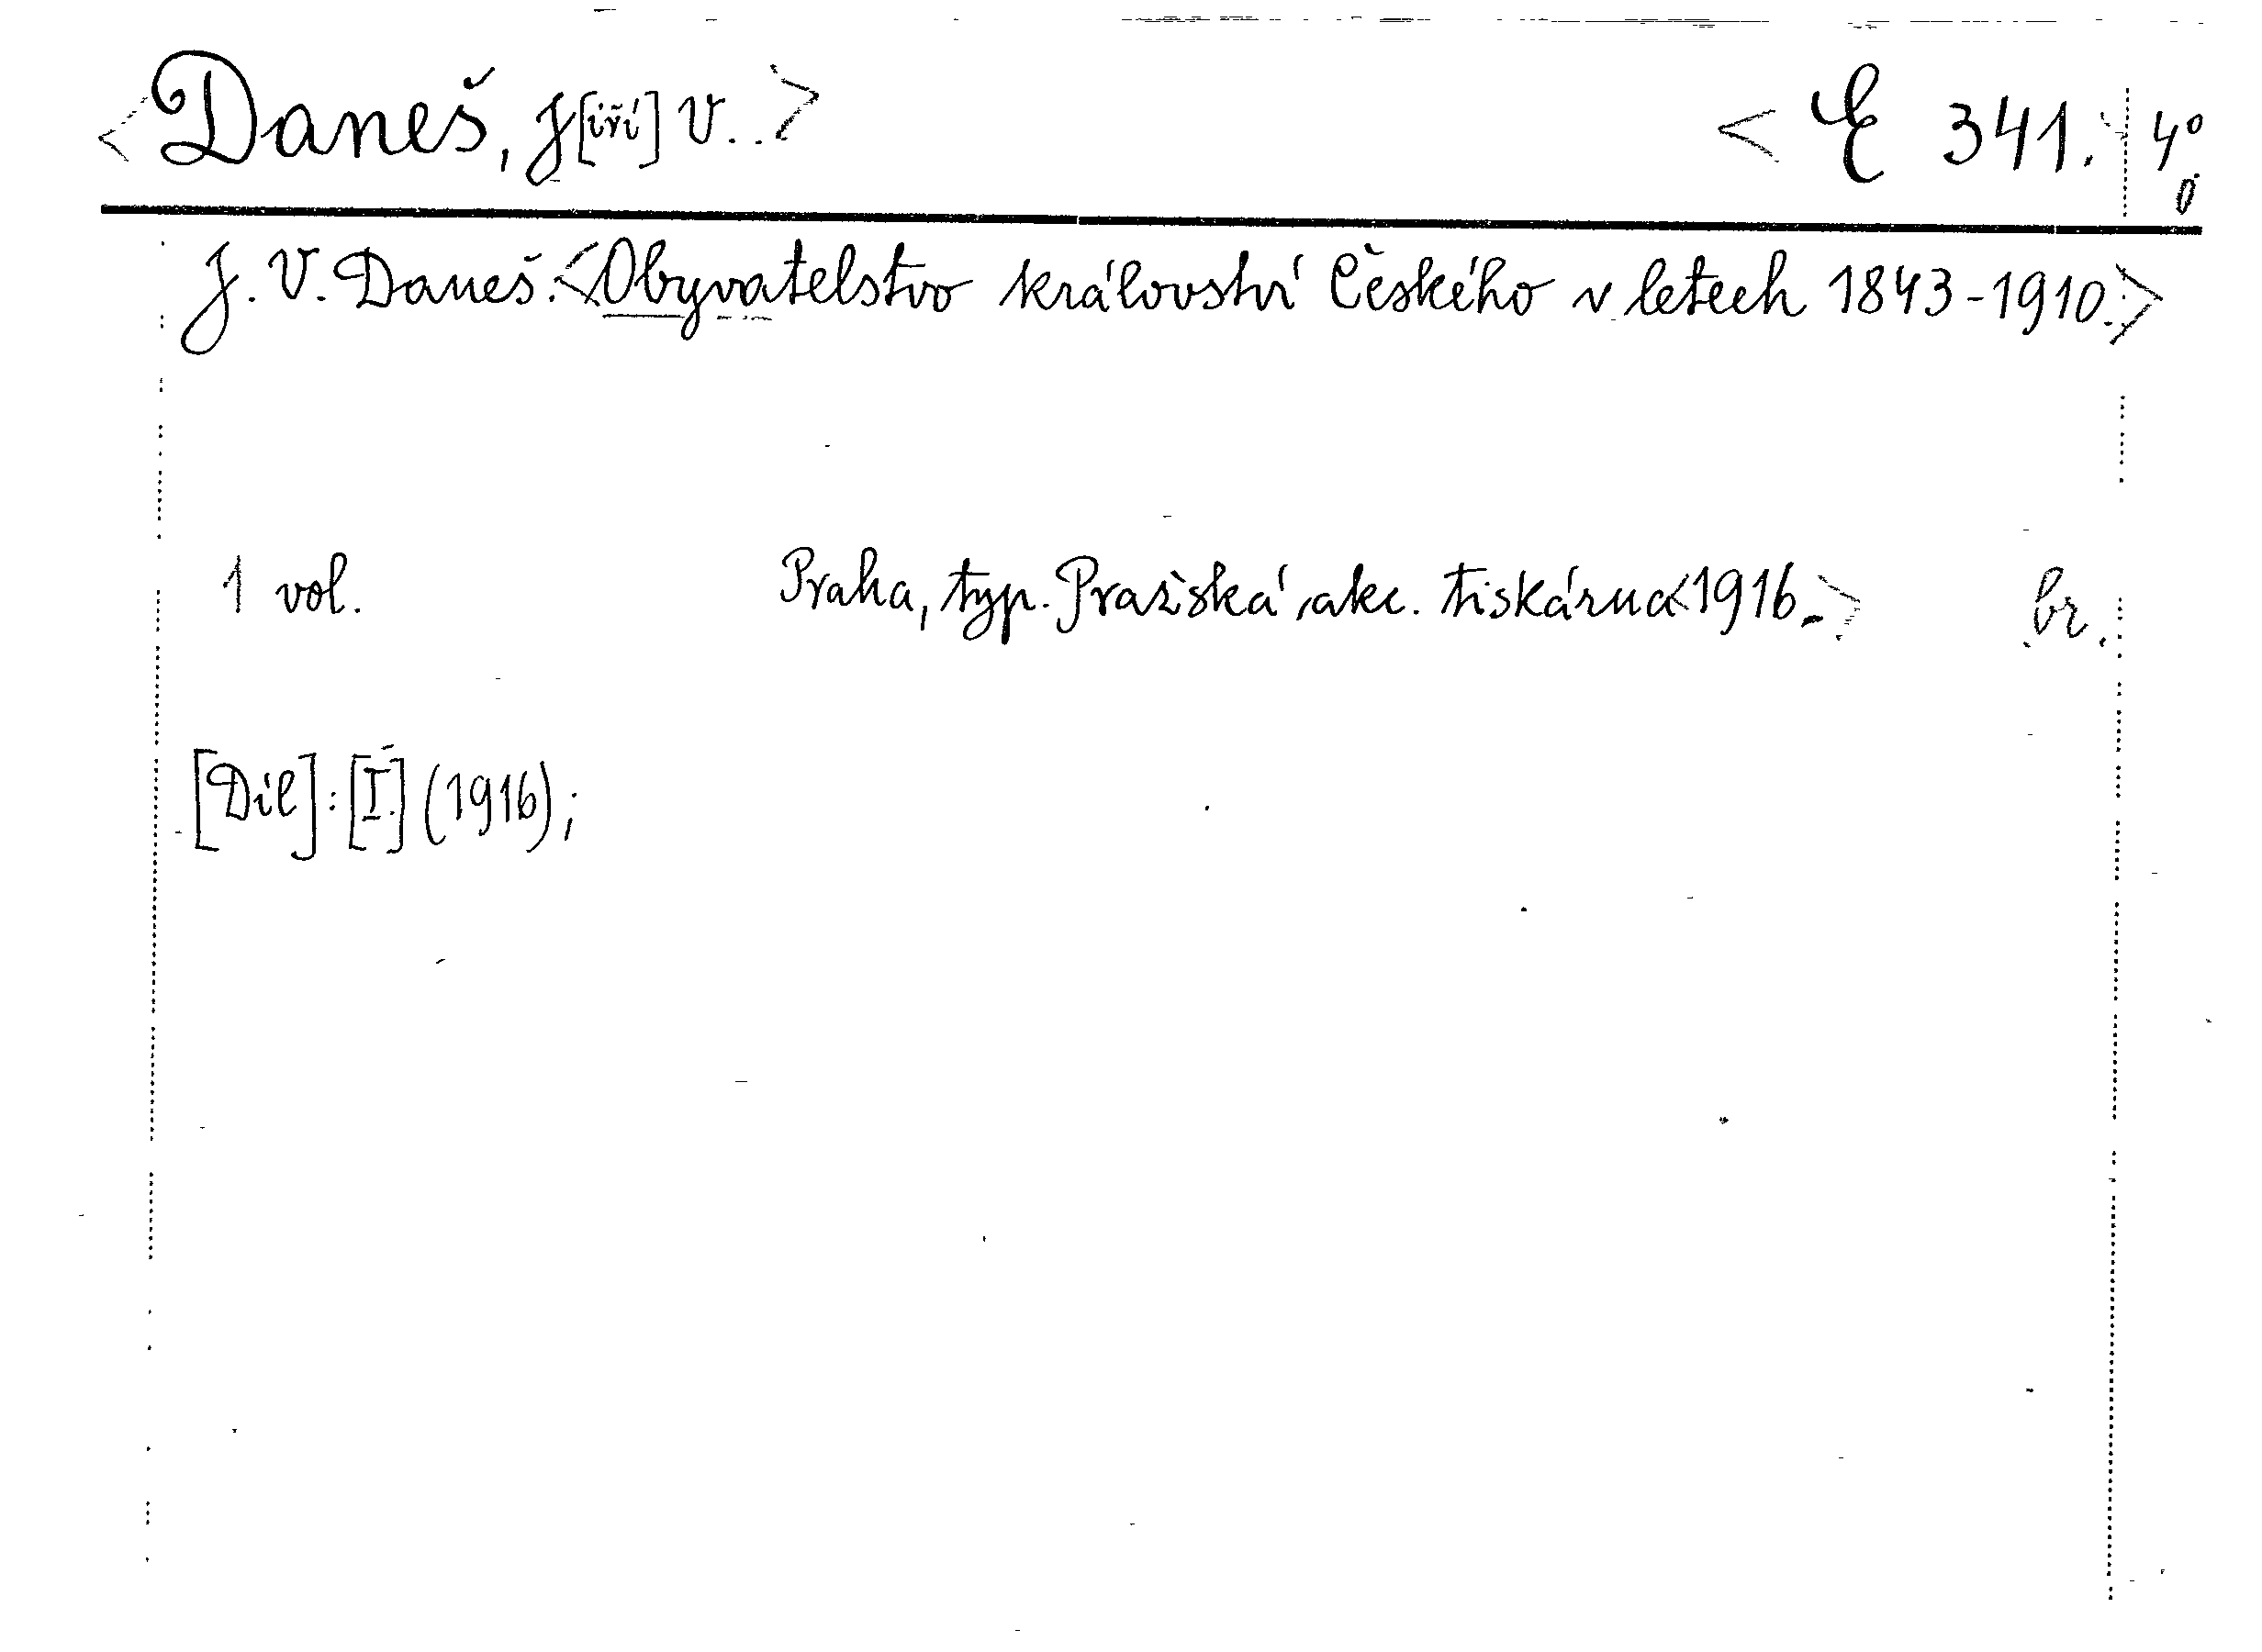 <Daneš, J[iří] V..> <E 341. 4°
J. V. Daneš.<Obyvatelstvo království Českého v letech 1843-1910.>
1 vol. Praha, typ. Pražská akc. tiskárna<1916.> br.
[Díl]: [I.] (1916);